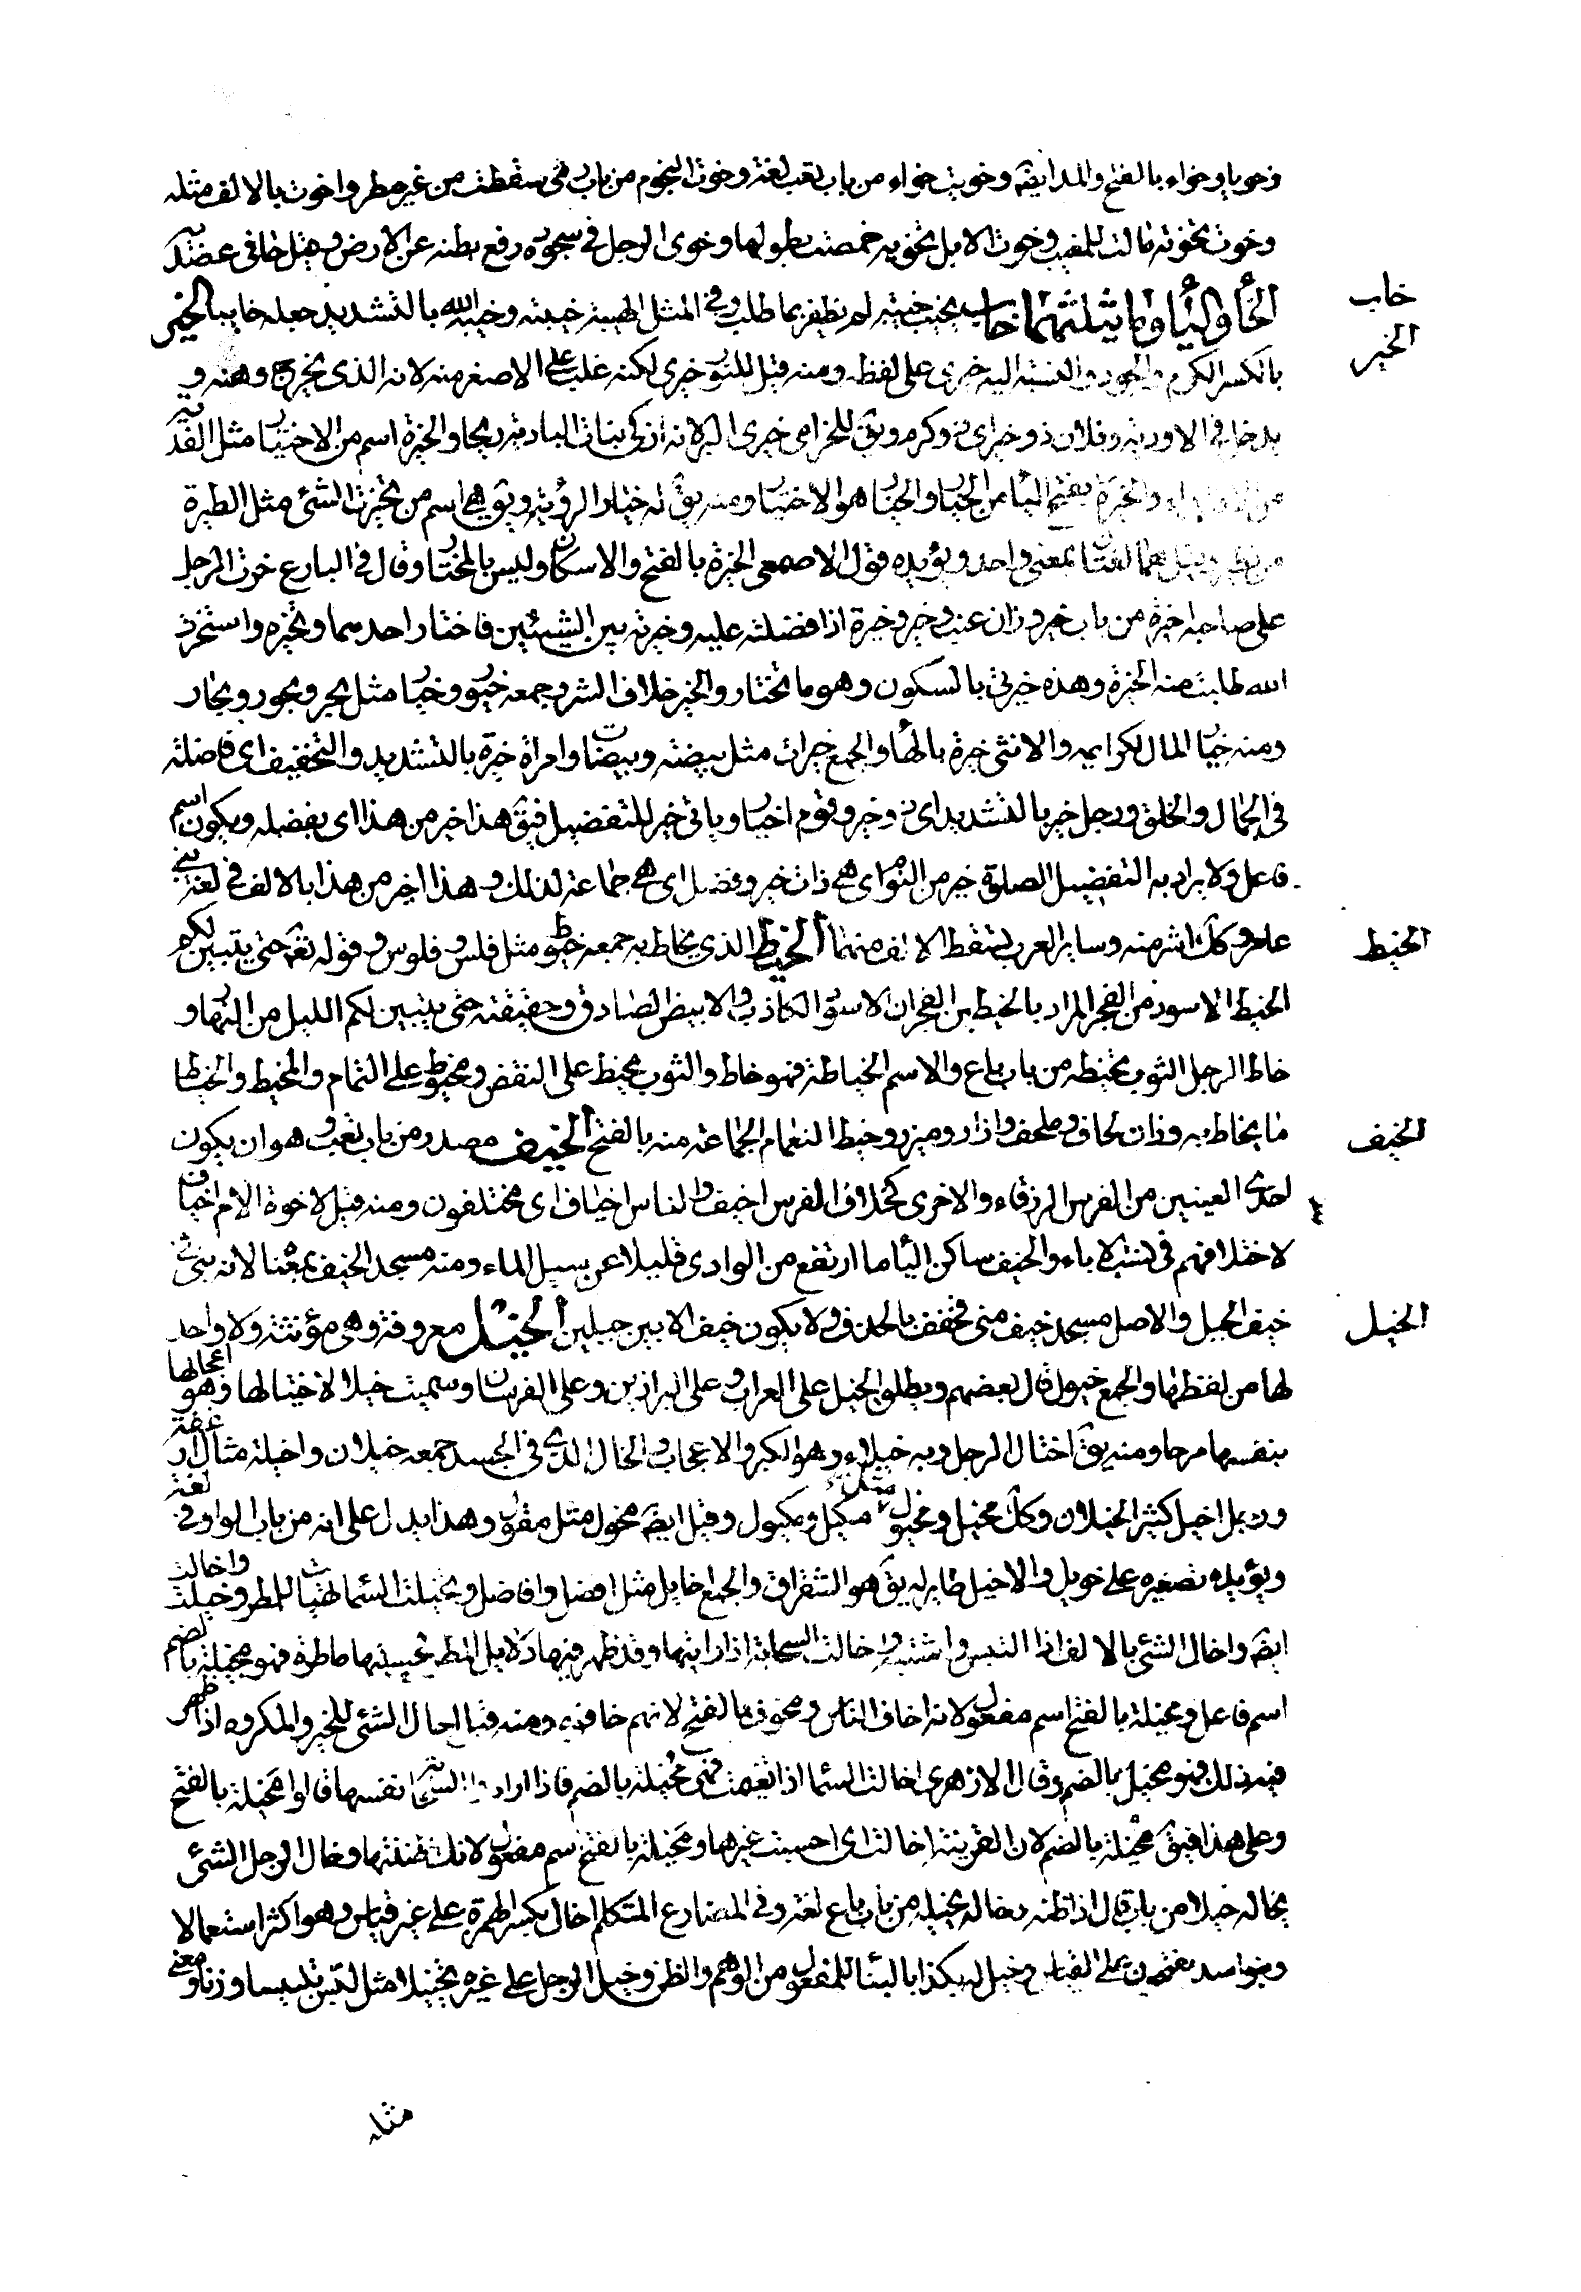 وخويا وخواء بالفتح والمد ايضه وخويت خواء من باب تعب لغة وخوت النجوم من باب رمى سقطت من غير مطر واخوت بالالف مثله
وخوت تخوية مالت للمغيب وخوت الابل تخوية خمصت بطونها وخوى الرجل في سجوده رفع بطنه عن الارض وقيل جافى عضديه
الخاء والياء وما يثلثهما خاب يخيب خيبة لم يظفر بما طلب وفي المثل الهيبة خيبة وخيبه الله بالتشديد جعله خايبا الخير
خاب
الخير
بالكسر الكرم والجود والنسبة اليه خيرى على لفظه ومنه قيل للمنثور خيرى لكنه غلب على الاصفر منه لانه الذى يخرج دهنه و
يدخل في الادوية وفلان ذو خير اى ذو كرم ويق للخزامى خيرى البر لانه ازكى نبات البادية ريحا والخيرة اسم من الاختيار مثل الفدية
من الافتداء والخيرة بفتح الياء من الخيار والخيار هو الاختيار ومنه يق له خيار الرؤية ويق هي اسم من تخيرت الشئ مثل الطيرة
من تطير وقيل هما لغتان بمعنى واحد ويؤيده قول الاصمعى الخيرة بالفتح والاسكان وليس بالمختار وقال في البارع خرت الرجل
على صاحبه اخيره من باب خير وزان عنب وخير وخيرة اذا فضلته عليه وخيرته بين الشيئين فاختار احدهما وتخيره واستخرت
الله طلبت منه الخيرة وهذه خيرتى بالسكون وهو ما يختار والخير خلاف الشر وجمعه خيور وخيار مثل بحر وبحور وبحار
ومنه خيار المال لكرايمه والانثى خيرة بالهاء والجمع خيرات مثل بيضة وبيضات وامراة خيرة بالتشديد والتخفيف اى فاضلة
في الجمال والخلق ورجل خير بالتشديد اى ذو خير وقوم اخيار وياتى خير للتفضيل فيق هذا خير من هذا اى يفضله ويكون اسم
فاعل ولا يراد به التفضيل الصلوة خير من النوم اى هي ذات خير وفضل اى هي جامعة لذلك وهذا اخير من هذا بالالف في لغة بنى
عامر وكك اشر منه وساير العرب تسقط الالف منهما الخيط الذى يخاط به جمعه خيوط مثل فلس وفلوس وقوله تعه حتى يتبين لكم
الخيط
الخيط الاسود من الفجر المراد بالخيطين الفجران الاسود الكاذب والابيض الصادق وحقيقته حتى يتبين لكم الليل من النهار و
خاط الرجل الثوب يخيطه من باب باع والاسم الخياطة فهو خاط والثوب مخيط على النقص ومخيوط على التمام والمخيط والخياط
ما يخاط به وزان لحاف وملحف وازار وميزر وخيط النعام الجماعة منه بالفتح الخيف مصدر من باب تعب وهو ان يكون
الخيف
احدى العينين من الفرس زرقاء والاخرى كحلا فالفرس اخيف والناس اخياف اى مختلفون ومنه قيل لاخوة الام اخياف
لاختلافهم في نسب الاباء والخيف ساكن الياء ما ارتفع من الوادى قليلا عن سيل الماء ومنه مسجد الخيف بمنا لانه بنى في
خيف الجبل والاصل مسجد خيف منى فخفف بالحذف ولا يكون خيف الا بين جبلين الخيل معروفة وهى مؤنثة ولا واحد
الخيل
لها من لفظها والجمع خيول قال بعضهم ويطلق الخيل على العراب وعلى البراذين وعلى الفرسان وسميت خيلا لاختيالها وهو اعجابها
بنفسها مرحا ومنه يق اختال الرجل وبه خيلاء وهو الكبر والاعجاب والخال الذى في الجسد جمعه خيلان واخيلة مثال ارغفة
ورجل اخيل كثير الخيلان وكك مخيل ومخيول مثل مكيل ومكيول وقيل ايضه مخول مثل مقول وهذا يدل على انه من باب الواو في لغة
ويؤيده تصغيره على خويل والاخيل طاير يق هو الشقراق والجمع اخايل مثل افضل وافاضل وتخيلت السماء تهيات للمطر وخيلت واخالت
ايضه واخال الشئ بالالف اذا التبس واشتبه واخالت السحابة اذا رايتها وقد ظهر فيها دلايل المطر فحسبتها ماطرة فهى مخيلة بالضم
اسم فاعل ومخيلة بالفتح اسم مفعول لانه اخاف الناس ومخوف بالفتح لانهم خافوه ومنه قيل اخال الشئ للخير والمكروه اذا ظهر
فيه ذلك فهو مخيل بالضم وقال الازهرى اخالت السماء اذا تغيمت فهى مخيلة بالضم فاذا ارادوا السحابة نفسها قالوا مخيلة بالفتح
وعلى هذا فيق مخيلة بالضم لان القرينة اخالت اى احسبت غيرها ومخيلة بالفتح اسم مفعول لانك ظننتها وخال الرجل الشئ
يخاله خيلا من باب قال اذا ظنه وخاله يخيله من باب باع لغة وفي المضارع المتكلم اخال بكسر الهمزة على غير قياس وهو اكثر استعمالا
وبنو اسد يفتحون على القياس وخيل له كذا بالبناء للمفعول من الوهم والظن وخيل الرجل على غيره تخييلا مثل لبس تلبيسا وزنا ومعنى
مثله